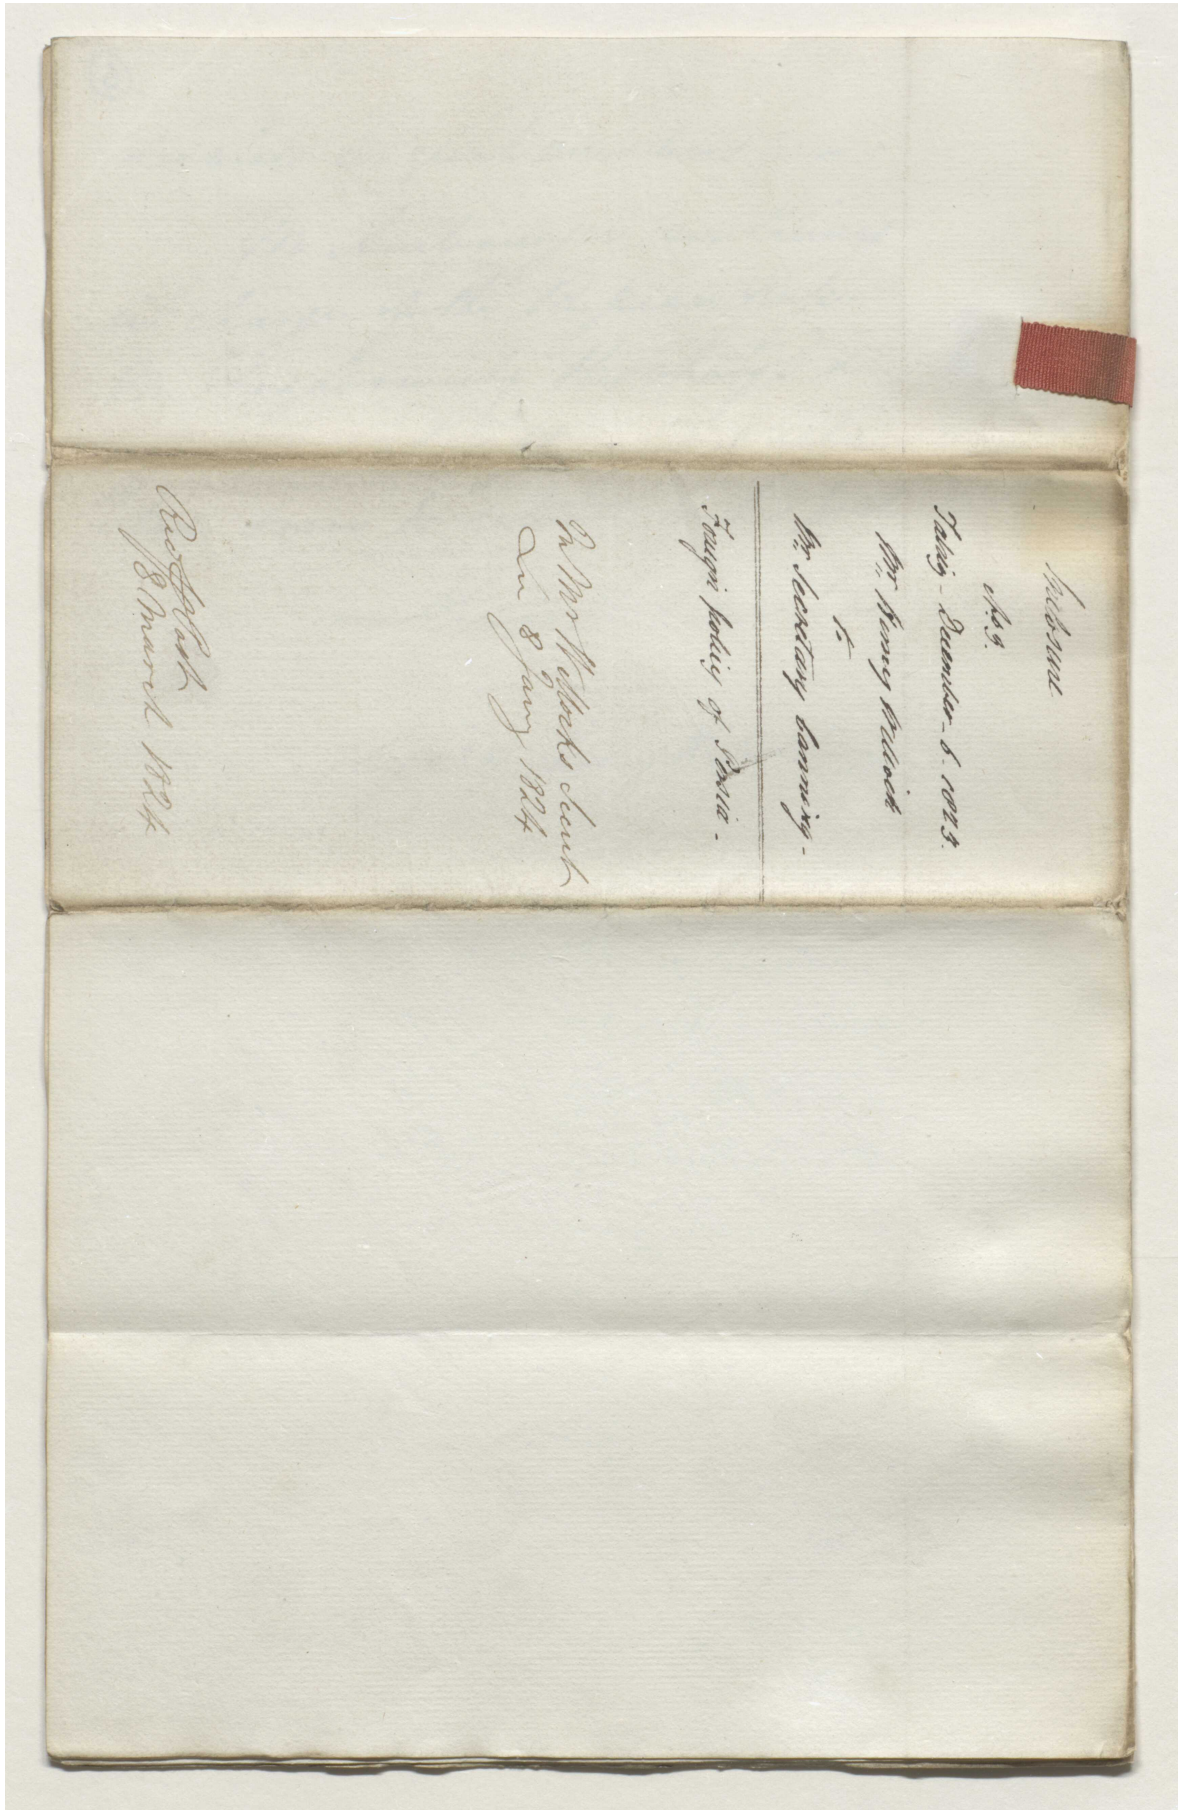 Enclosure
No 9.
Tabriz - December - 6. 1823.
Mr. Henry Willock
to
Mr. Secretary Canning -
Foreign policy of Persia -
In Mr Willocks Secret
Lr 8 Jany 1824
Rec
8 March 1824